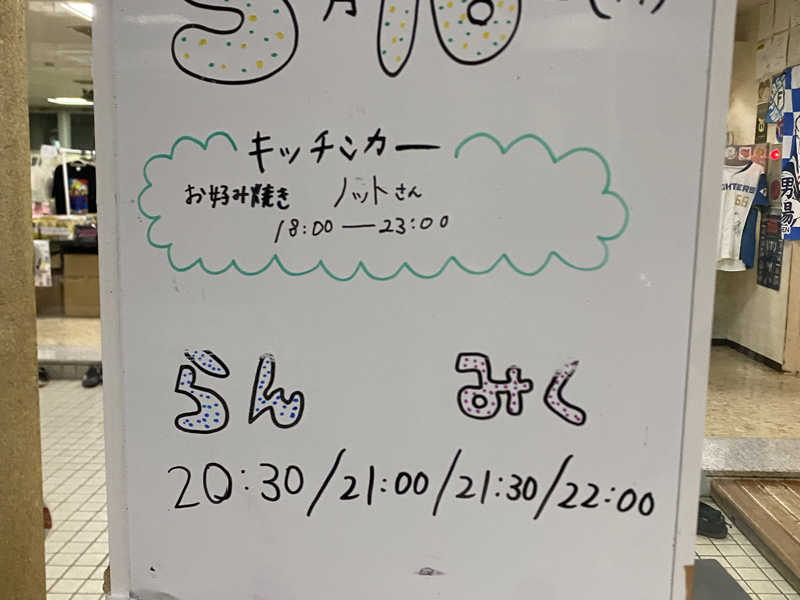 5月18日(
キッチンカー
お好み焼き ノットさん
18:00 — 23:00
らん みく
20:30/21:00/21:30/22:00
FIGHTERS
68
男湯